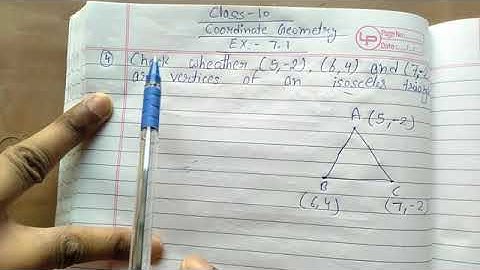 Class-10
Coordinate Geometry
EX:- 7.1
Page No.
④ Check wheather (5,-2), (6,4) and (7,-2
are vertices of an isosceles triang
A (5,-2)
B
C
(6,4)
(7,-2)